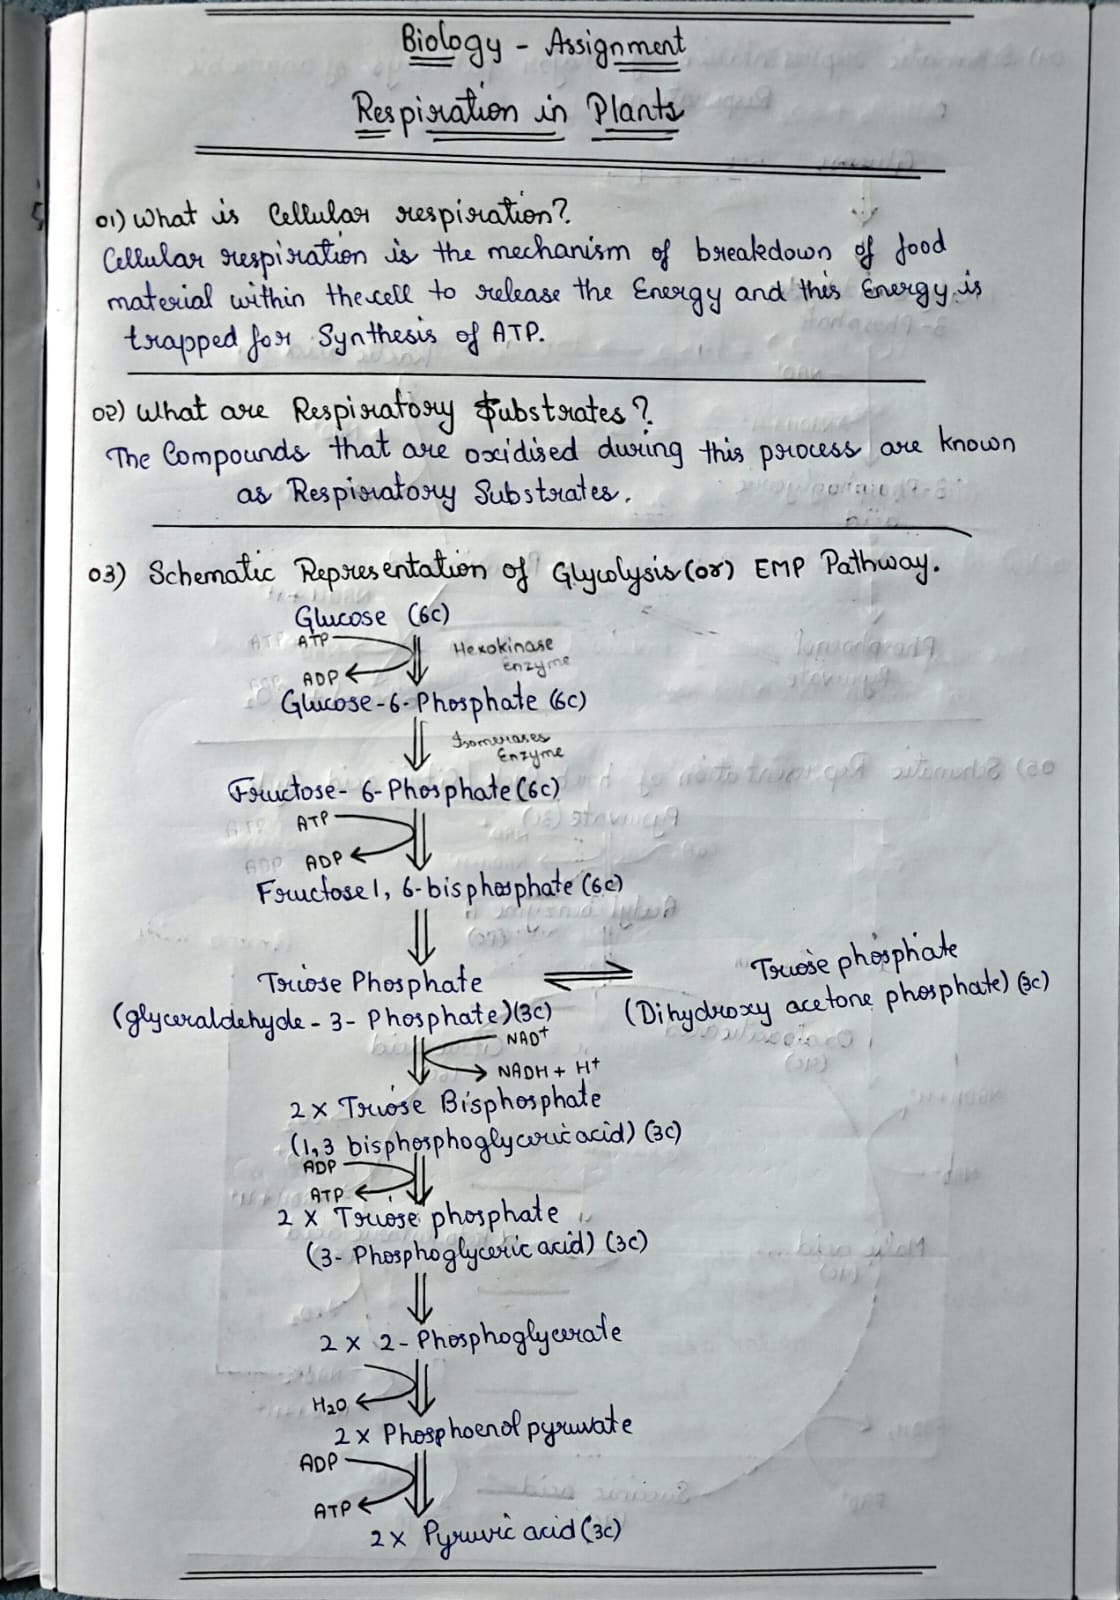 Biology - Assignment
Respiration in Plants
01) What is Cellular respiration?
Cellular respiration is the mechanism of breakdown of food
material within the cell to release the Energy and this Energy is
trapped for Synthesis of ATP.
02) What are Respiratory Substrates?
The Compounds that are oxidised during this process are known
as Respiratory Substrates.
03) Schematic Representation of Glycolysis (or) EMP Pathway.
Glucose (6C)
ATP
Hexokinase
Enzyme
ADP
Glucose-6-Phosphate (6C)
Isomerases
Enzyme
Fructose-6-Phosphate (6C)
ATP
ADP
Fructose 1, 6-bisphosphate (6C)
Triose Phosphate ⇌ Triose phosphate
(glyceraldehyde-3-Phosphate) (3C) (Dihydroxy acetone phosphate) (3C)
NAD+
NADH + H+
2 x Triose Bisphosphate
(1,3 bisphosphoglyceric acid) (3C)
ADP
ATP
2 x Triose phosphate
(3-Phosphoglyceric acid) (3C)
2 x 2-Phosphoglycerate
H2O
2 x Phosphoenol pyruvate
ADP
ATP
2 x Pyruvic acid (3C)